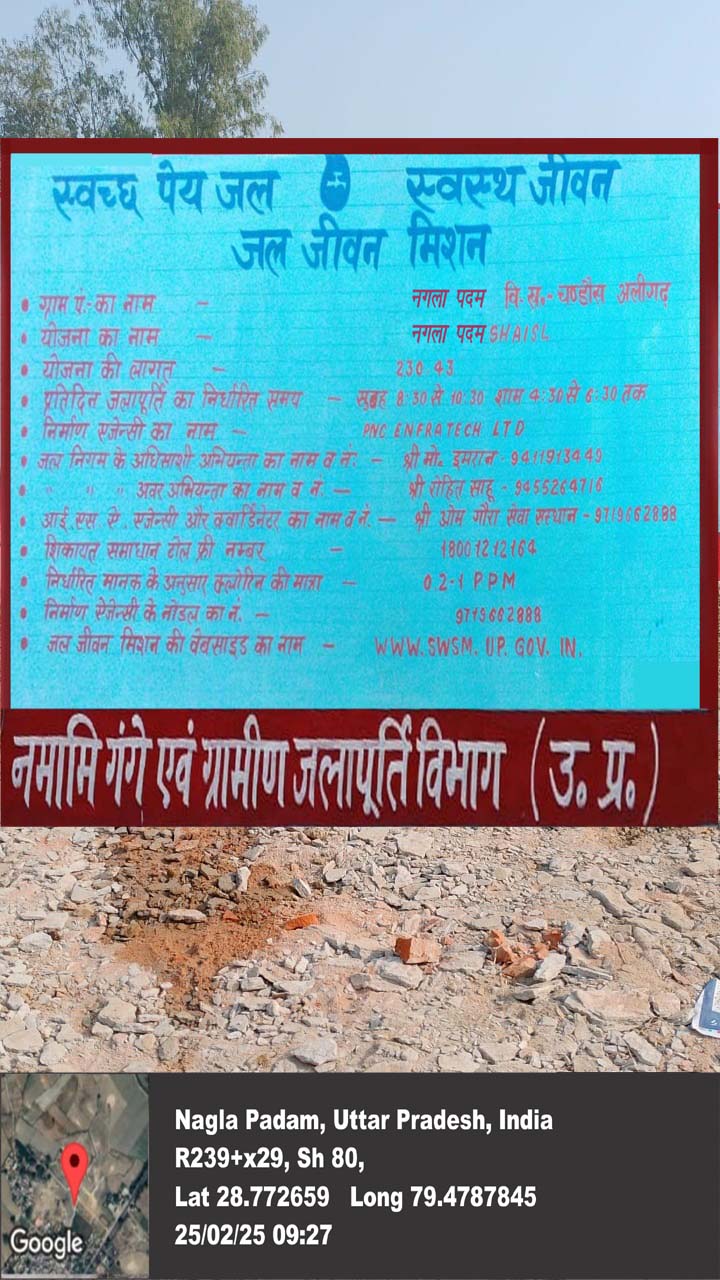 स्वच्छ पेय जल स्वस्थ जीवन
जल जीवन मिशन
• ग्राम पं:- का नाम - नगला पदम वि.ख.- चण्डौस अलीगढ़
• योजना का नाम - नगला पदम SHAISL
• योजना की लागत - 230.43
• प्रतिदिन जलापूर्ति का निर्धारित समय - सुबह 8:30 से 10:30 शाम 4:30 से 6:30 तक
• निर्माण एजेन्सी का नाम - PNC ENFRATECH LTD
• जल निगम के अधिसाशी अभियन्ता का नाम व नं. - श्री मो. इमरान - 9411913449
• " " " अवर अभियन्ता का नाम व नं. - श्री रोहित साहू - 9455264716
• आई. एस. ऐ. एजेन्सी और क्वार्डिनेटर का नाम व नं. - श्री ओम गौरा सेवा संस्थान - 9719662888
• शिकायत समाधान टोल फ्री नम्बर - 18001212164
• निर्धारित मानक के अनुसार क्लोरिन की मात्रा - 0.2-1 PPM
• निर्माण ऐजेन्सी के नोडल का नं. - 9719662888
• जल जीवन मिशन की वेबसाइड का नाम - WWW.SWSM.UP.GOV.IN.
नमामि गंगे एवं ग्रामीण जलापूर्ति विभाग (उ. प्र.)
Nagla Padam, Uttar Pradesh, India
R239+x29, Sh 80,
Lat 28.772659 Long 79.4787845
25/02/25 09:27
Google